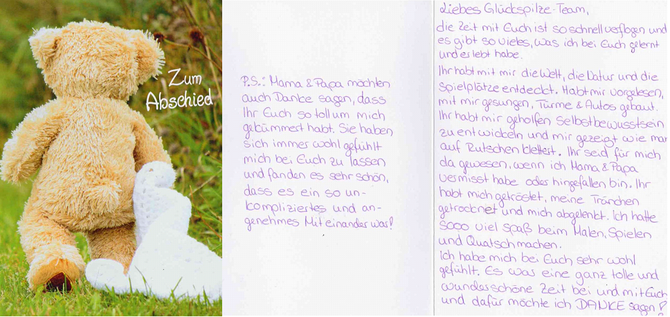 Zum
Abschied
P.S.: Mama & Papa möchten
auch Danke sagen, dass
Ihr Euch so toll um mich
gekümmert habt. Sie haben
sich immer wohl gefühlt
mich bei Euch zu lassen
und fanden es sehr schön,
dass es ein so un-
kompliziertes und an-
genehmes Miteinander war!
Liebes Glückspilze-Team,
die Zeit mit Euch ist so schnell verflogen und
es gibt so vieles, was ich bei Euch gelernt
und erlebt habe.
Ihr habt mit mir die Welt, die Natur und die
Spielplätze entdeckt. Habt mir vorgelesen,
mit mir gesungen, Türme & Autos gebaut.
Ihr habt mir geholfen Selbstbewusstsein
zu entwickeln und mir gezeigt wie man
auf Rutschen klettert. Ihr seid für mich
da gewesen, wenn ich Mama & Papa
vermisst habe oder hingefallen bin. Ihr
habt mich getröstet, meine Tränchen
getrocknet und mich abgelenkt. Ich hatte
sooo viel Spaß beim Malen, Spielen
und Quatschmachen.
Ich habe mich bei Euch sehr wohl
gefühlt. Es was eine ganz tolle und
wunderschöne Zeit bei und mit Euch
und dafür möchte ich DANKE sagen!